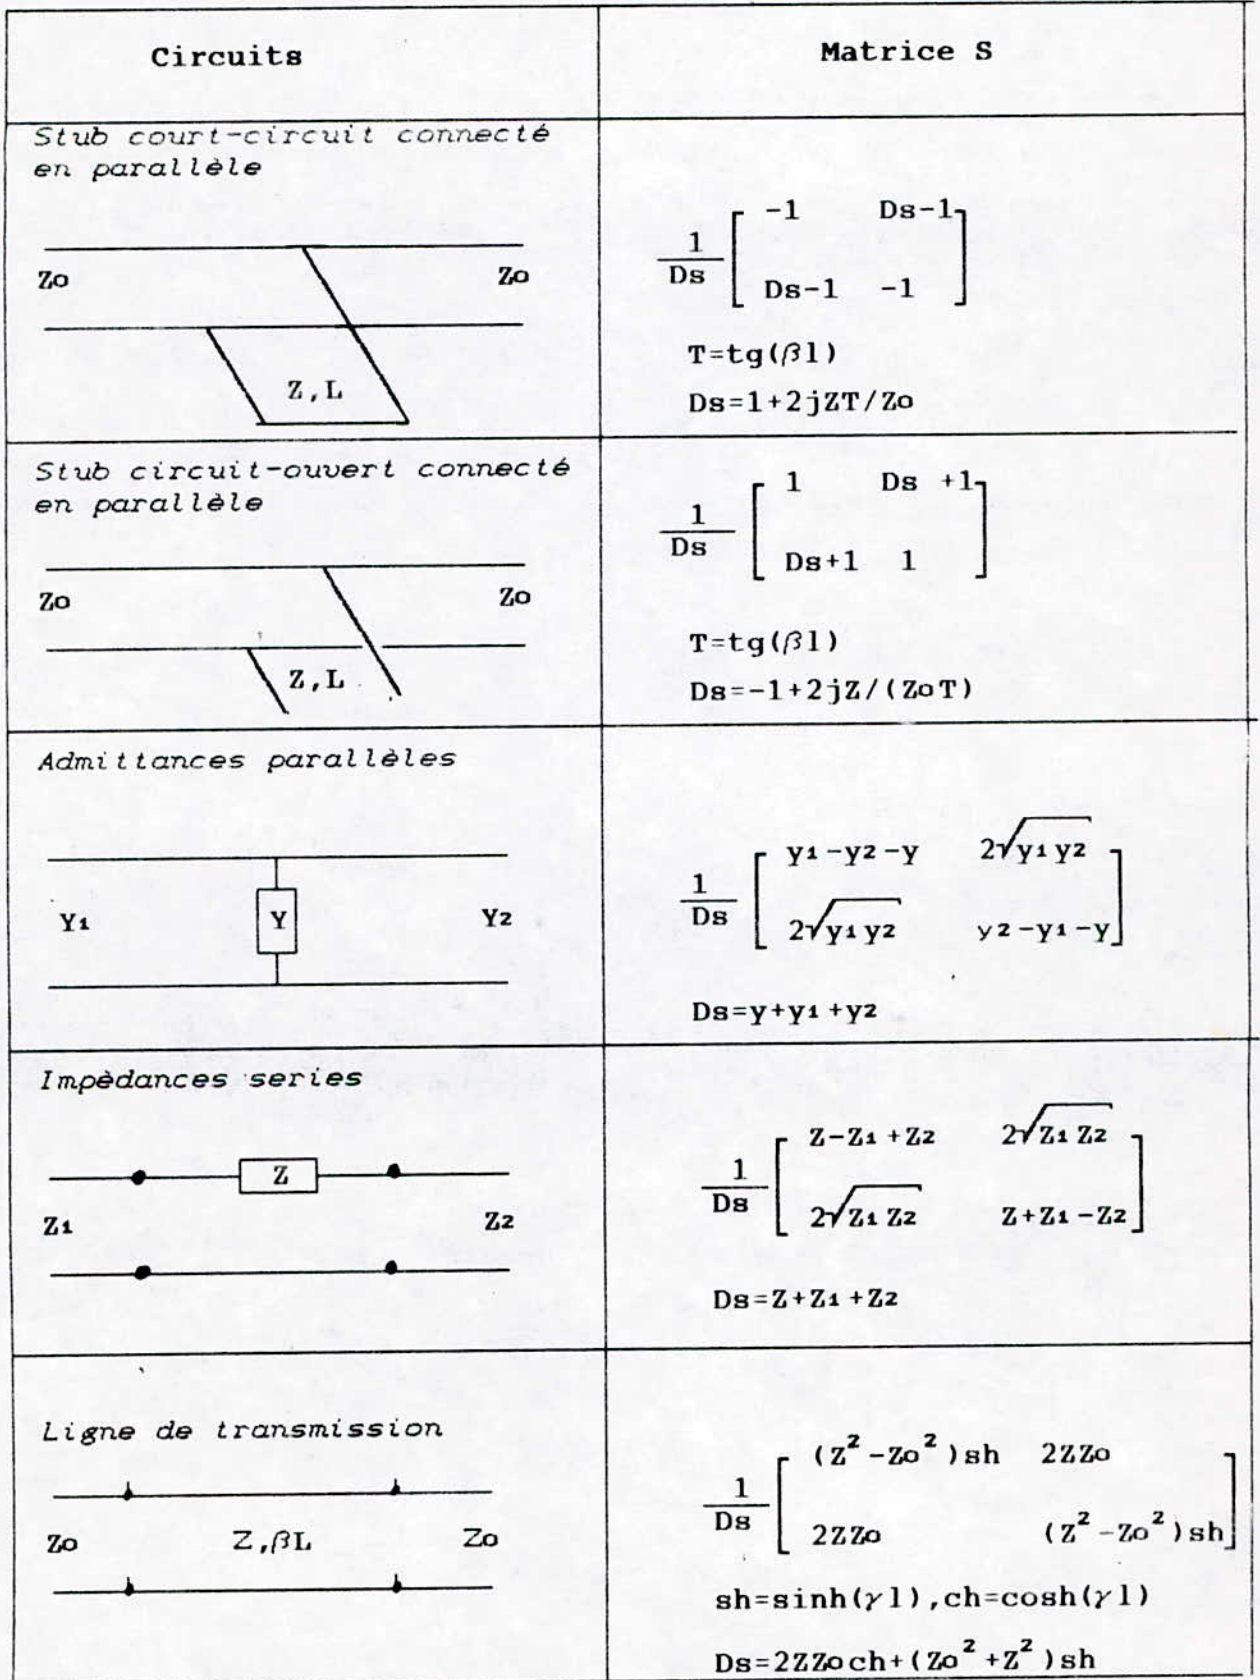 Circuits
Matrice S
Stub court-circuit connecté
en parallèle
Zo
Zo
Z,L
1
Ds
-1 Ds-1
Ds-1 -1
T=tg(βl)
Ds=1+2jZT/Zo
Stub circuit-ouvert connecté
en parallèle
Zo
Zo
Z,L
1
Ds
1 Ds +1
Ds+1 1
T=tg(βl)
Ds=-1+2jZ/(ZoT)
Admittances parallèles
Y1
Y
Y2
1
Ds
y1-y2-y 2√y1y2
2√y1y2 y2-y1-y
Ds=y+y1+y2
Impèdances series
Z
Z1
Z2
1
Ds
Z-Z1+Z2 2√Z1Z2
2√Z1Z2 Z+Z1-Z2
Ds=Z+Z1+Z2
Ligne de transmission
Zo
Z,βL
Zo
1
Ds
(Z²-Zo²)sh 2ZZo
2ZZo (Z²-Zo²)sh
sh=sinh(γl),ch=cosh(γl)
Ds=2ZZoch+(Zo²+Z²)sh